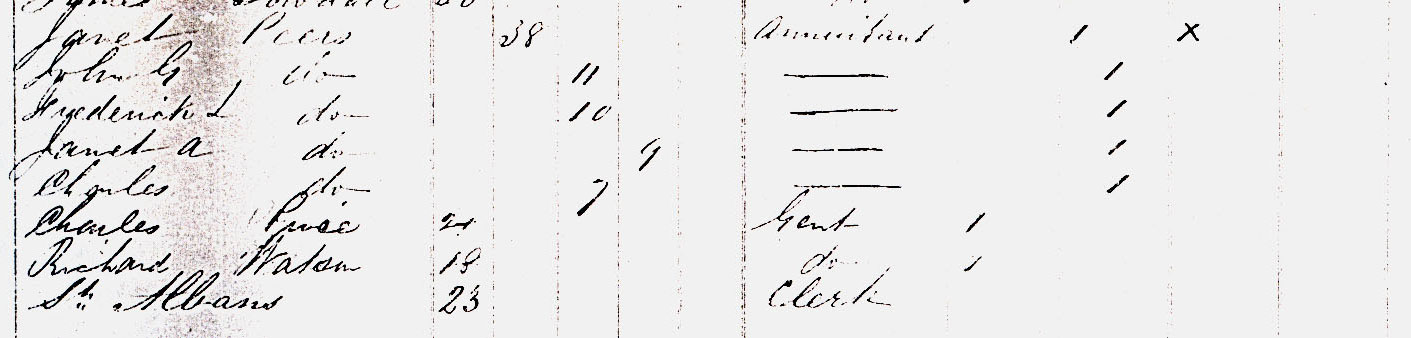 Janet Peers 38 Annuitant 1 x
John G do 11 — 1
Frederick L do 10 — 1
Janet A do 9 — 1
Charles do 7 — 1
Charles Price Gent 1
Richard Watson 19 do 1
St. Albans 23 Clerk